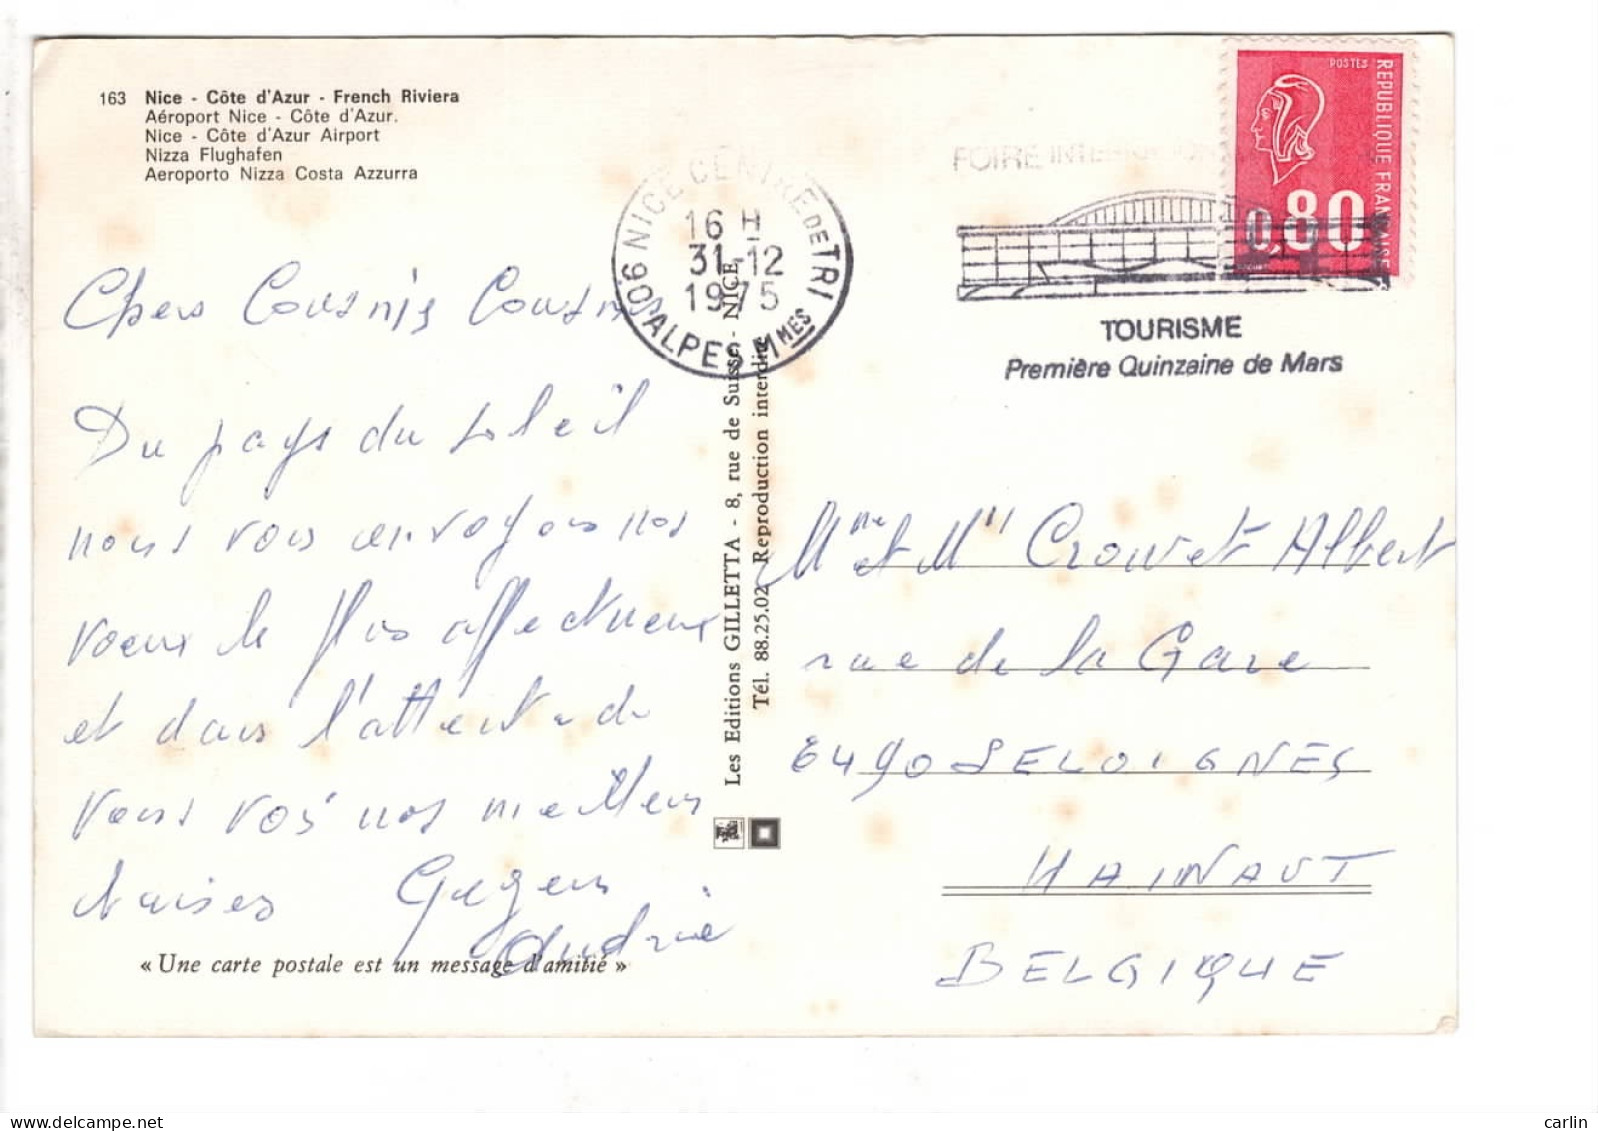 163 Nice - Côte d'Azur - French Riviera
Aéroport Nice - Côte d'Azur.
Nice - Côte d'Azur Airport
Nizza Flughafen
Aeroporto Nizza Costa Azzurra
Chers Cousins Cousines
Du pays du soleil
nous vous envoyons nos
voeux le plus affectueux
et dans l'attente de
vous nos meilleurs
baises
« Une carte postale est un message d'amitié »
06 NICE CENTRE DE TRI
16 H
31-12
1975
ALPES Mmes
Les Editions GILLETTA - 8, rue de Suisse - NICE
Tél. 88.25.02 Reproduction interdite
POSTES
REPUBLIQUE FRANÇAISE
0,80
FOIRE INTERNATIONALE
TOURISME
Première Quinzaine de Mars
Mme et Mr Crowet Albert
rue de la Gare
6490 SELOIGNES
HAINAUT
BELGIQUE
www.delcampe.net
carlin